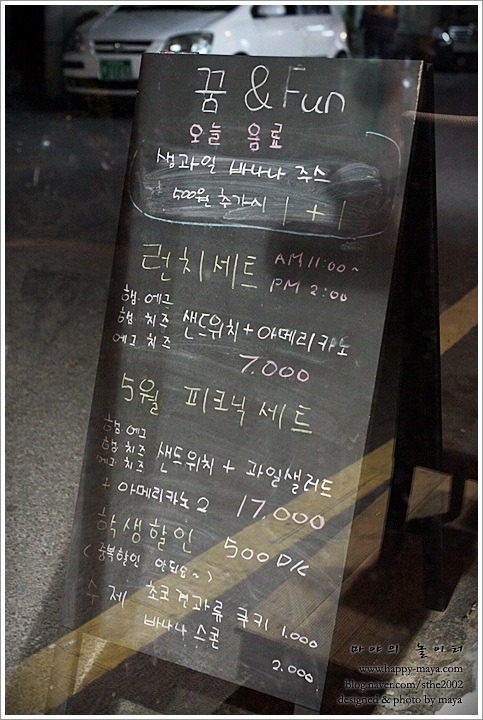 꿈 & Fun
오늘 음료
생과일 바나나 주스
500원 추가시 1 + 1
런치세트 AM 11:00~
PM 2:00
햄.에그
햄.치즈 샌드위치+아메리카노
에그 치즈
7.000
5월 피크닉 세트
햄.에그
햄.치즈 샌드위치 + 과일샐러드
에그 치즈
+ 아메리카노 2 17.000
학생할인 500 D/C
(중복할인 안되요~)
수제 초코견과류 쿠키 1.000
바나나 스콘
2.000
마야의 놀이터
www.happy-maya.com
blog.naver.com/sthe2002
designed & photo by maya